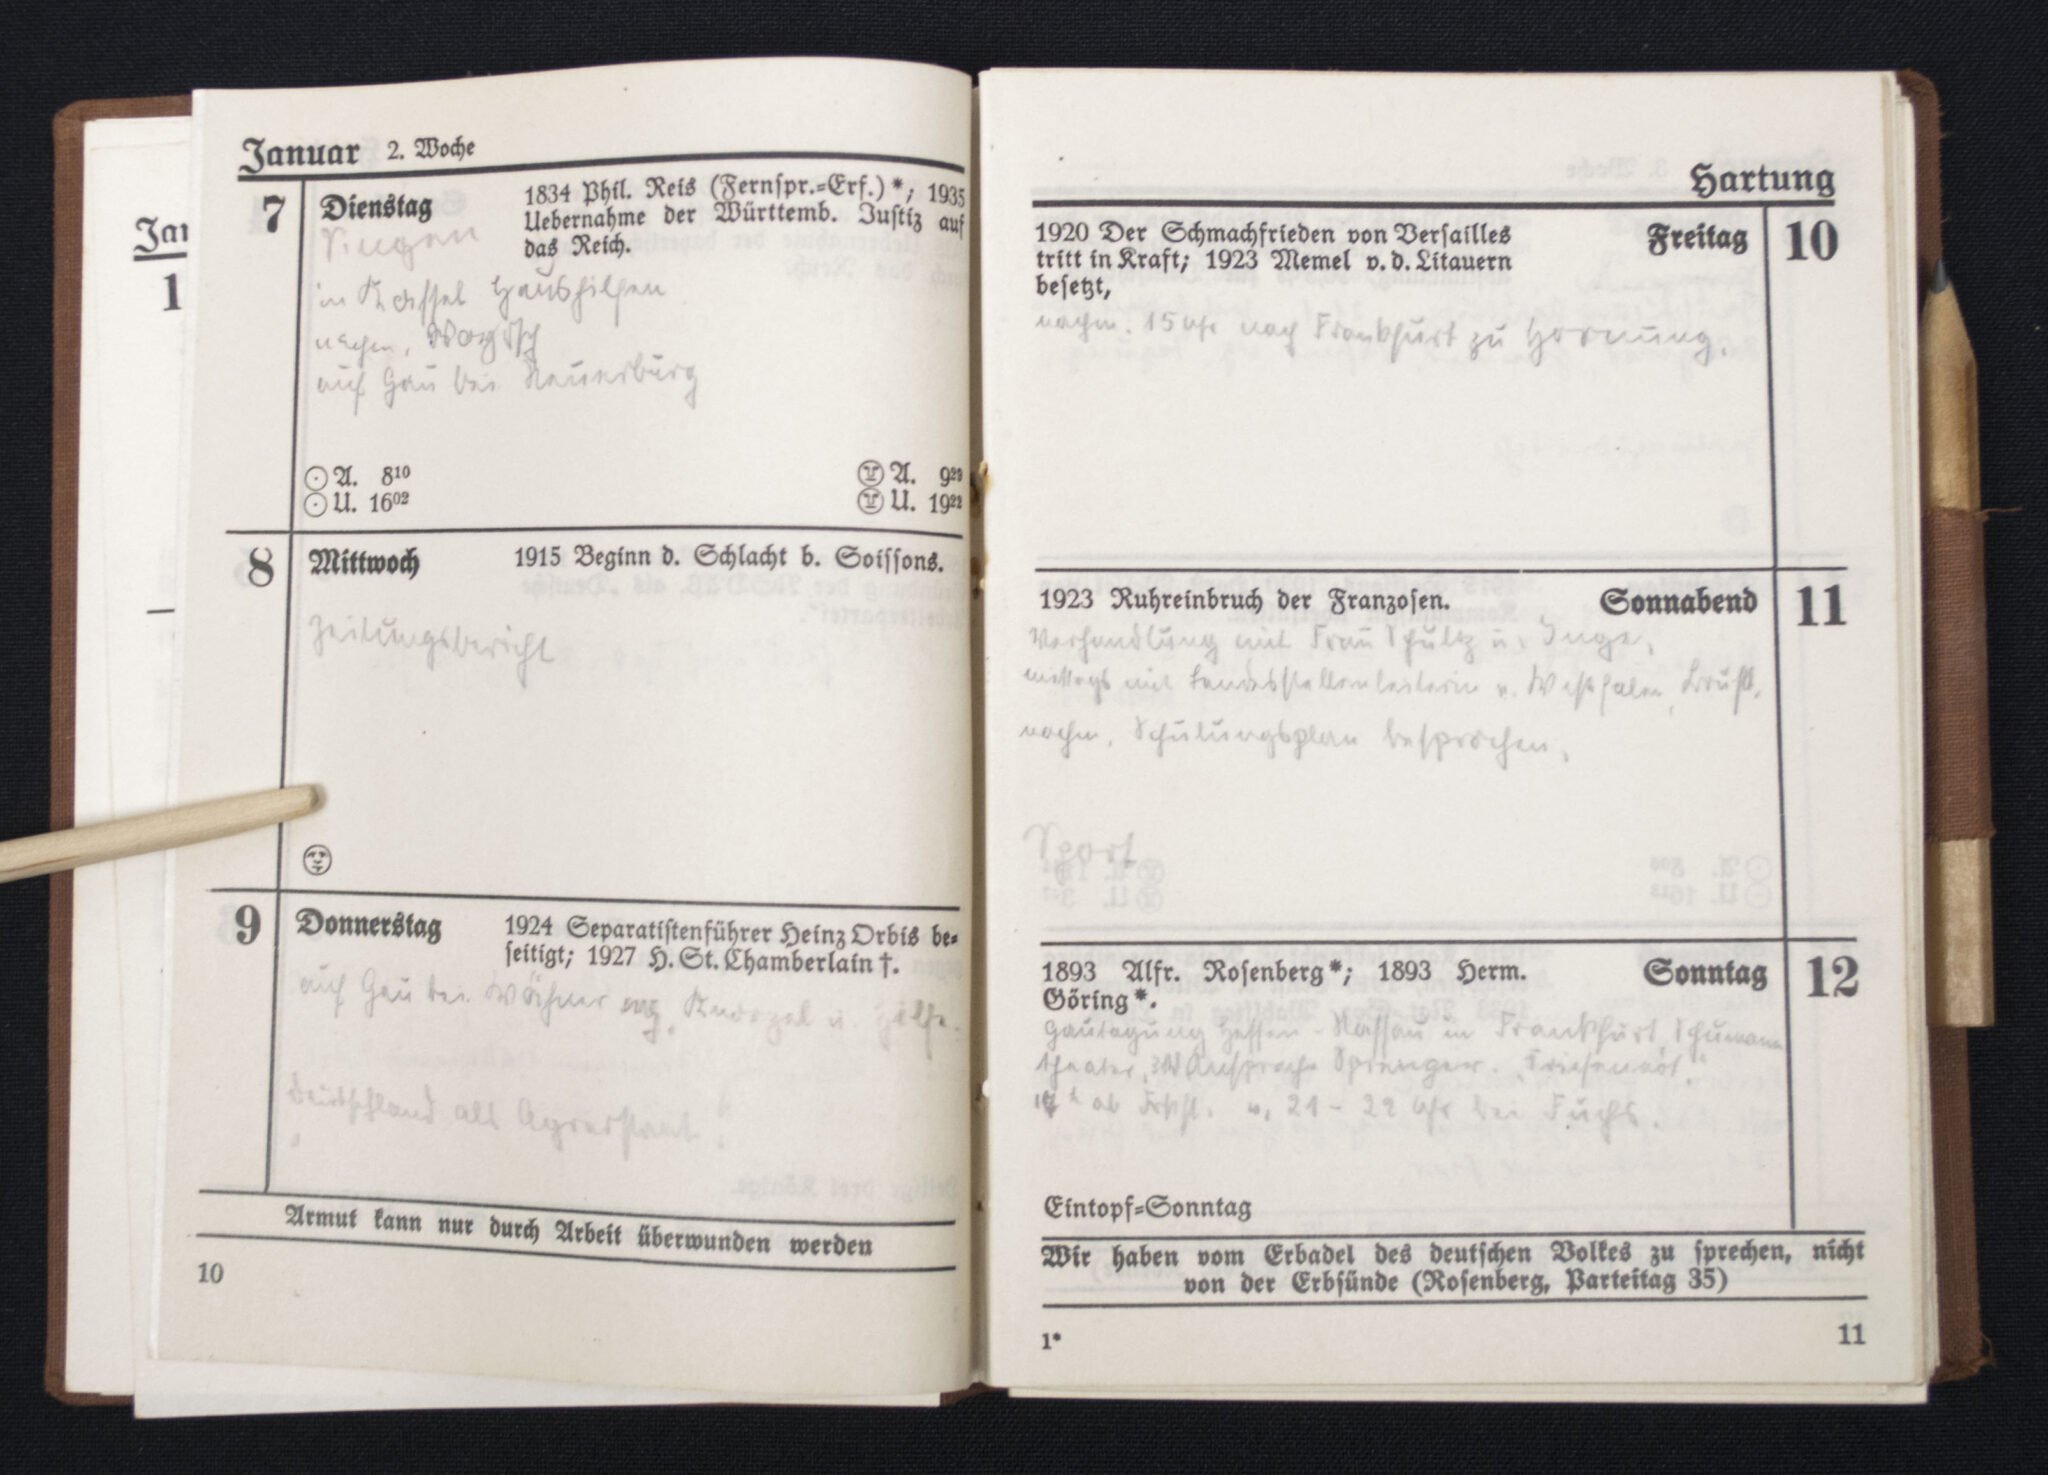 Jan
1
Januar 2. Woche
7 Dienstag 1834 Phil. Reis (Fernspr.=Erf.)*; 1935
Uebernahme der Württemb. Justiz auf
das Reich.
Singen
in Kassel Haushilfen
auf Gau bei
⊙ A. 8¹⁰ A. 9²³
⊙ U. 16⁰² U. 19²²
8 Mittwoch 1915 Beginn d. Schlacht b. Soissons.
Zeitungsbericht
9 Donnerstag 1924 Separatistenführer Heinz Orbis be=
seitigt; 1927 H. St. Chamberlain †.
auf Gau bei u.
Deutschland als Agrarstaat.
Armut kann nur durch Arbeit überwunden werden
10
Hartung
1920 Der Schmachfrieden von Versailles Freitag 10
tritt in Kraft; 1923 Memel v. d. Litauern
besetzt,
nachm. 15 Uhr nach Frankfurt zu Hornung.
1923 Ruhreinbruch der Franzosen. Sonnabend 11
Verhandlung mit Frau Schultz u. Inge,
mittags mit Landesstellenleiterin v. Westfalen
nachm. Schulungsplan besprochen.
Sport
1893 Alfr. Rosenberg*; 1893 Herm. Sonntag 12
Göring*.
Gautagung Hessen-Nassau in Frankfurt, Schumann
theater, Ansprache Sprenger. "
ab Frkft. v. 21 - 22 Uhr bei Fuchs.
Eintopf=Sonntag
Wir haben vom Erbadel des deutschen Volkes zu sprechen, nicht
von der Erbsünde (Rosenberg, Parteitag 35)
1*
11